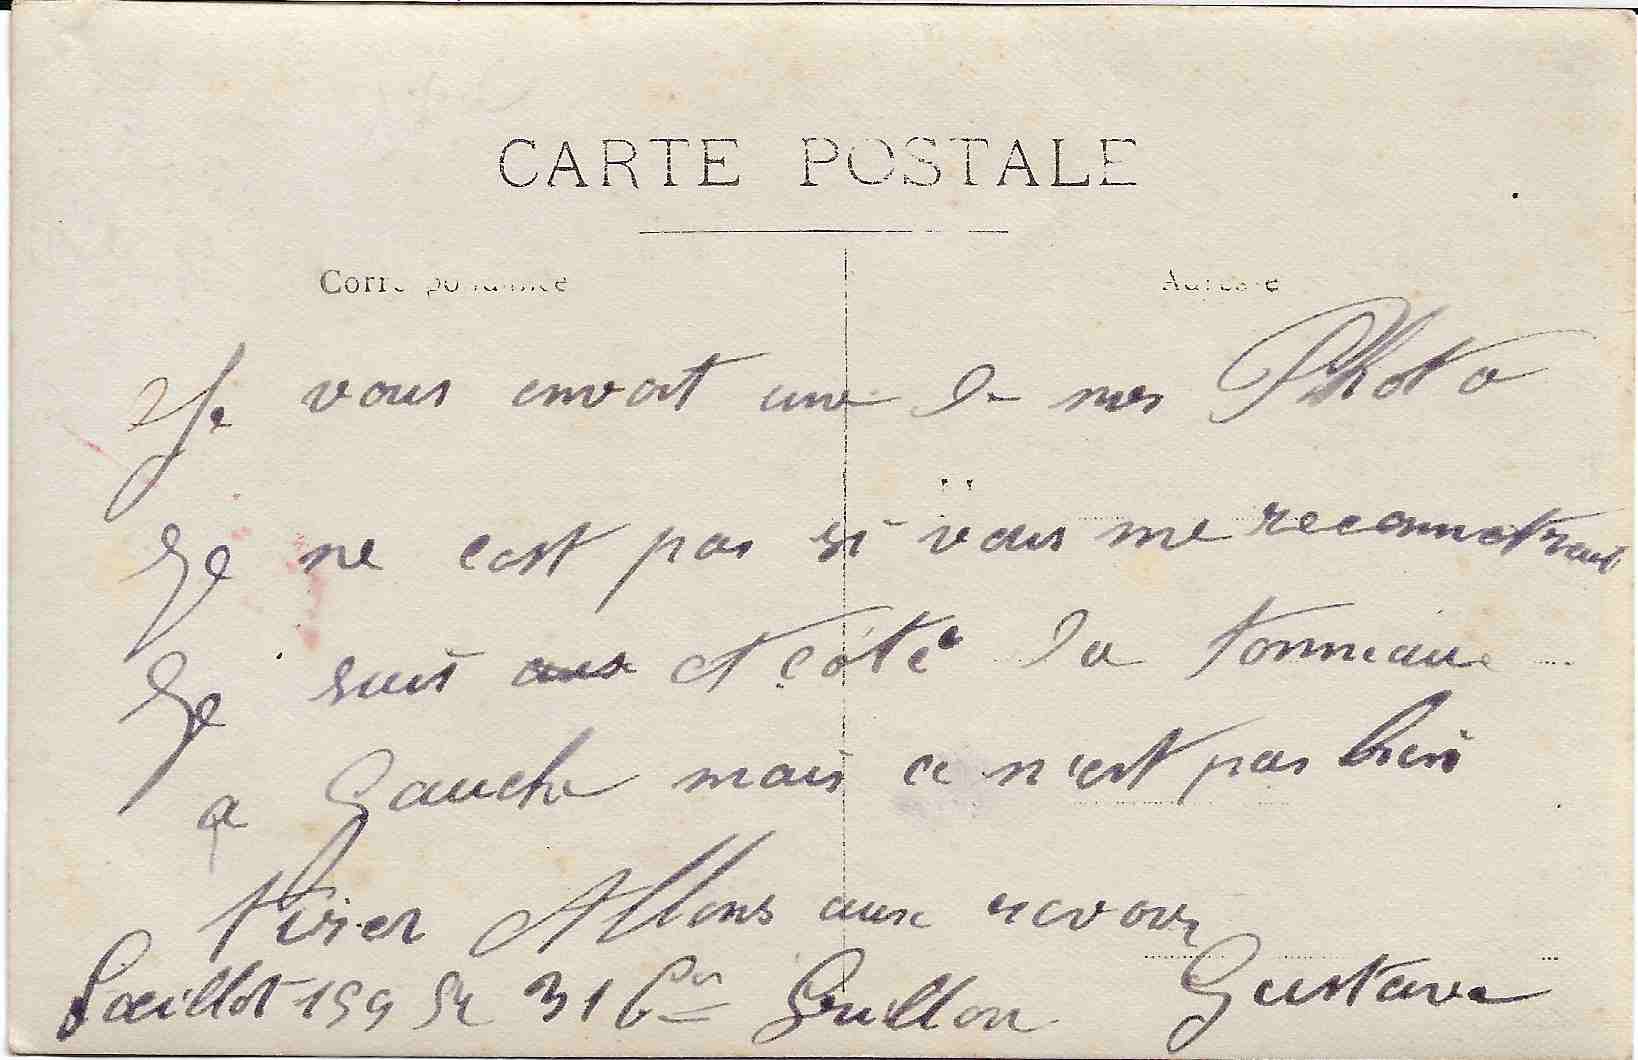 CARTE POSTALE
Correspondance
Adresse
Je vous envoit une de mes Photo
Je ne cest pas si vous me reconnetrais
Je suis a côté du tonneaue
a Gauche mais ce n'est pas bien
tirer Allons aux revoir
Gustave